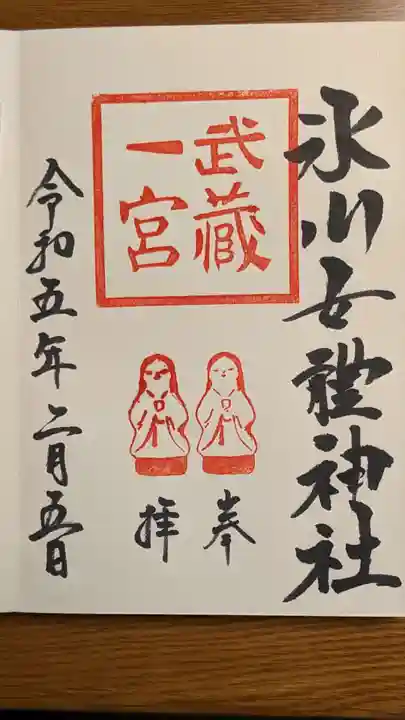 氷川女體神社
武蔵
一宮
奉
拝
令和五年二月五日